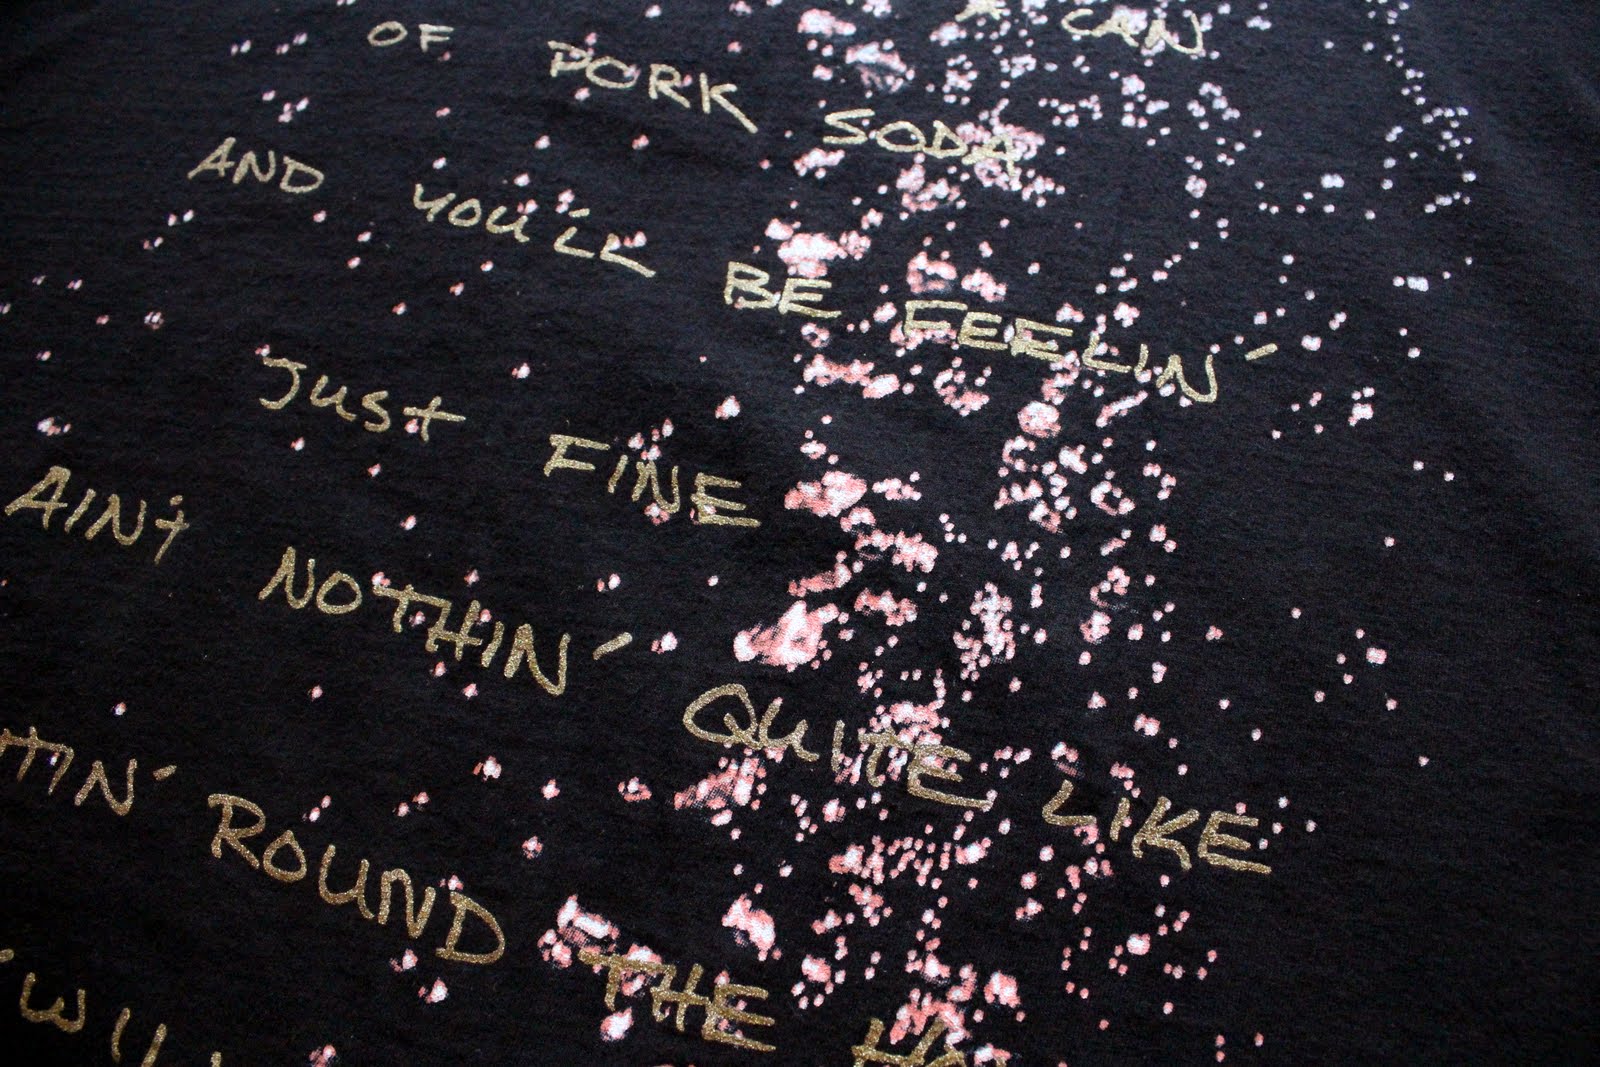 A CAN
OF PORK SODA
AND YOU'LL BE FEELIN'
JUST FINE
AIN'T NOTHIN' QUITE LIKE
ROUND THE